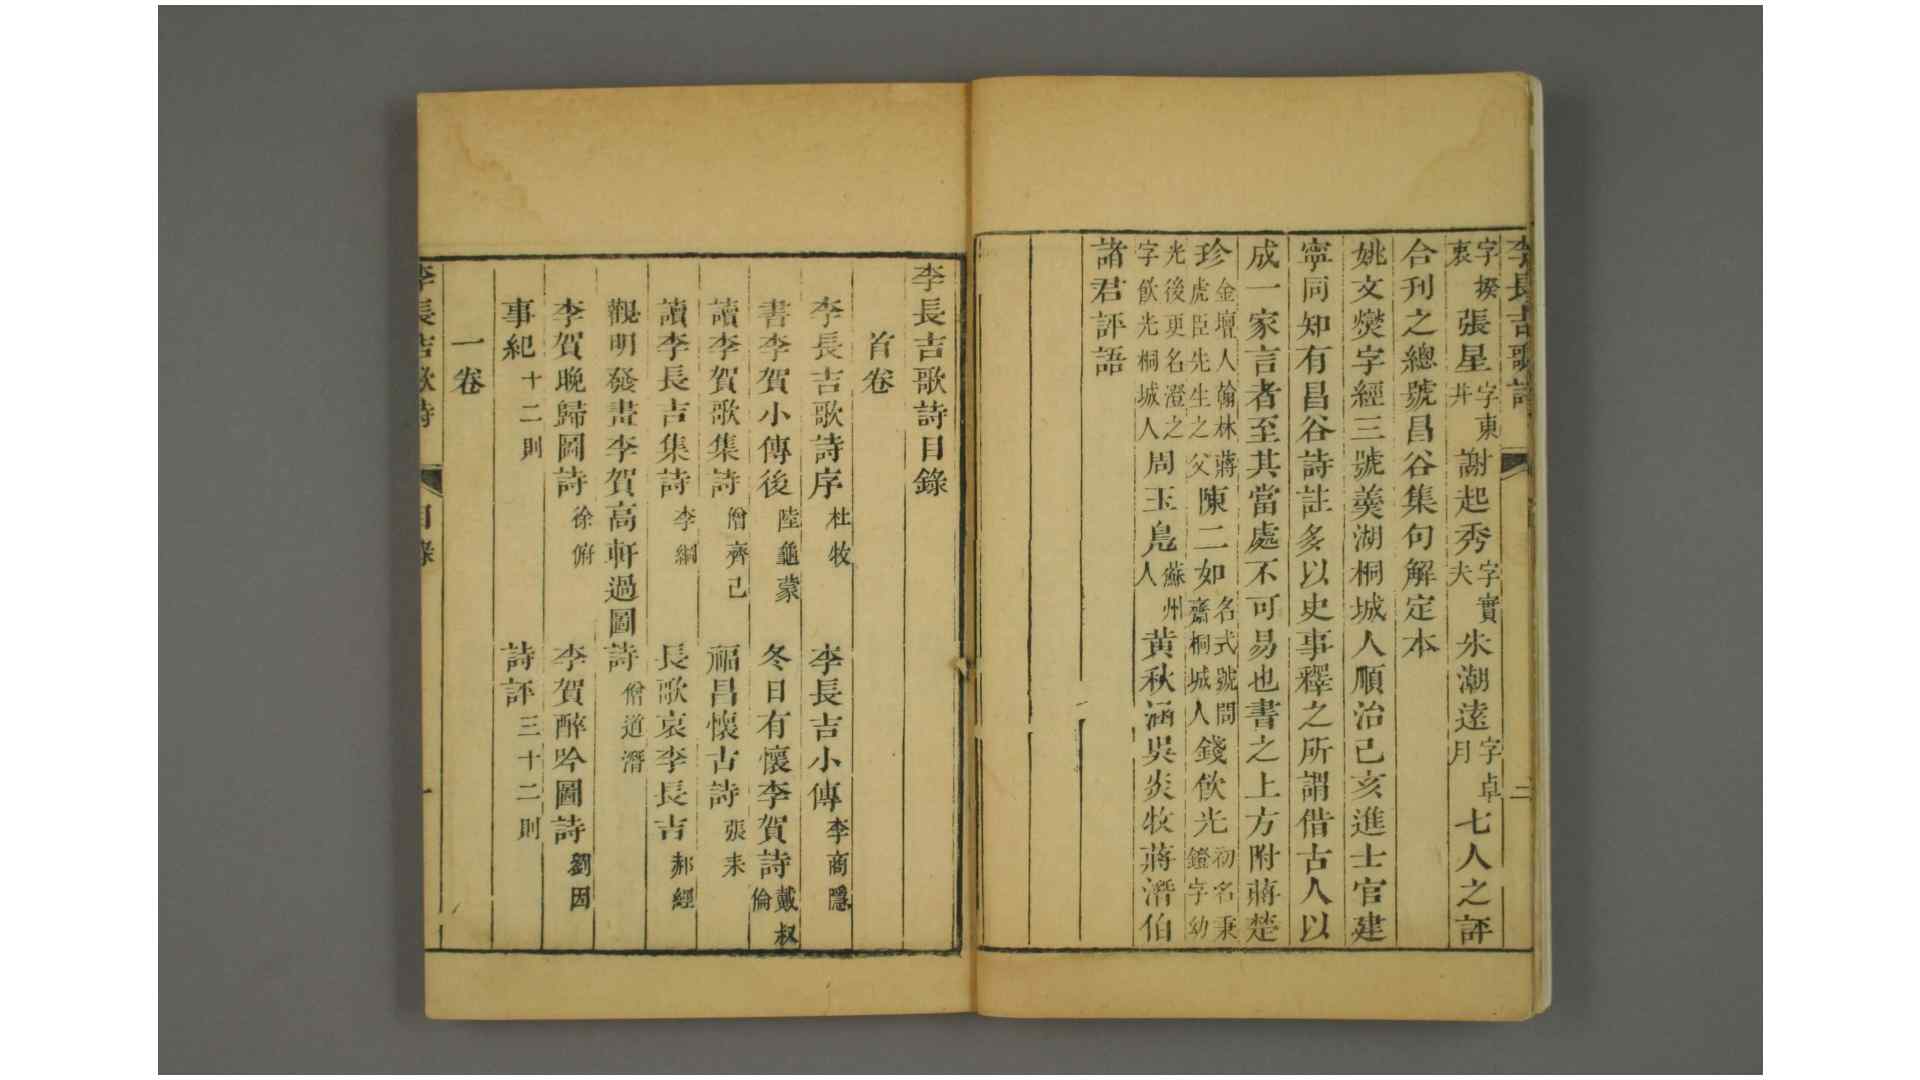 李長吉歌詩 二
字揆哀張星字東井謝起秀字實夫朱潮遠字卓月七人之評
合刊之總號昌谷集句解定本
姚文燮字經三號羹湖桐城人順治己亥進士官建
寧同知有昌谷詩註多以史事釋之所謂借古人以
成一家言者至其當處不可易也書之上方附蔣楚
珍金壇人翰林蔣虎臣先生之父陳二如名式號問齋桐城人錢飲光初名秉鐙字幼
光後更名澄之字飲光桐城人周玉鳧蘇州人黃秋涵吳炎牧蔣潛伯
諸君評語
李長吉歌詩目錄
首卷
李長吉歌詩序 杜牧 李長吉小傳 李商隱
書李賀小傳後 陸龜蒙 冬日有懷李賀詩 戴叔倫
讀李賀歌集詩 僧齊己 福昌懷古詩 張耒
讀李長吉集詩 李綱 長歌哀李長吉 郝經
觀明發畫李賀高軒過圖詩 僧道潛
李賀晚歸圖詩 徐俯 李賀醉吟圖詩 劉因
事紀 十二則 詩評 三十二則
一卷
李長吉歌詩 目錄 一